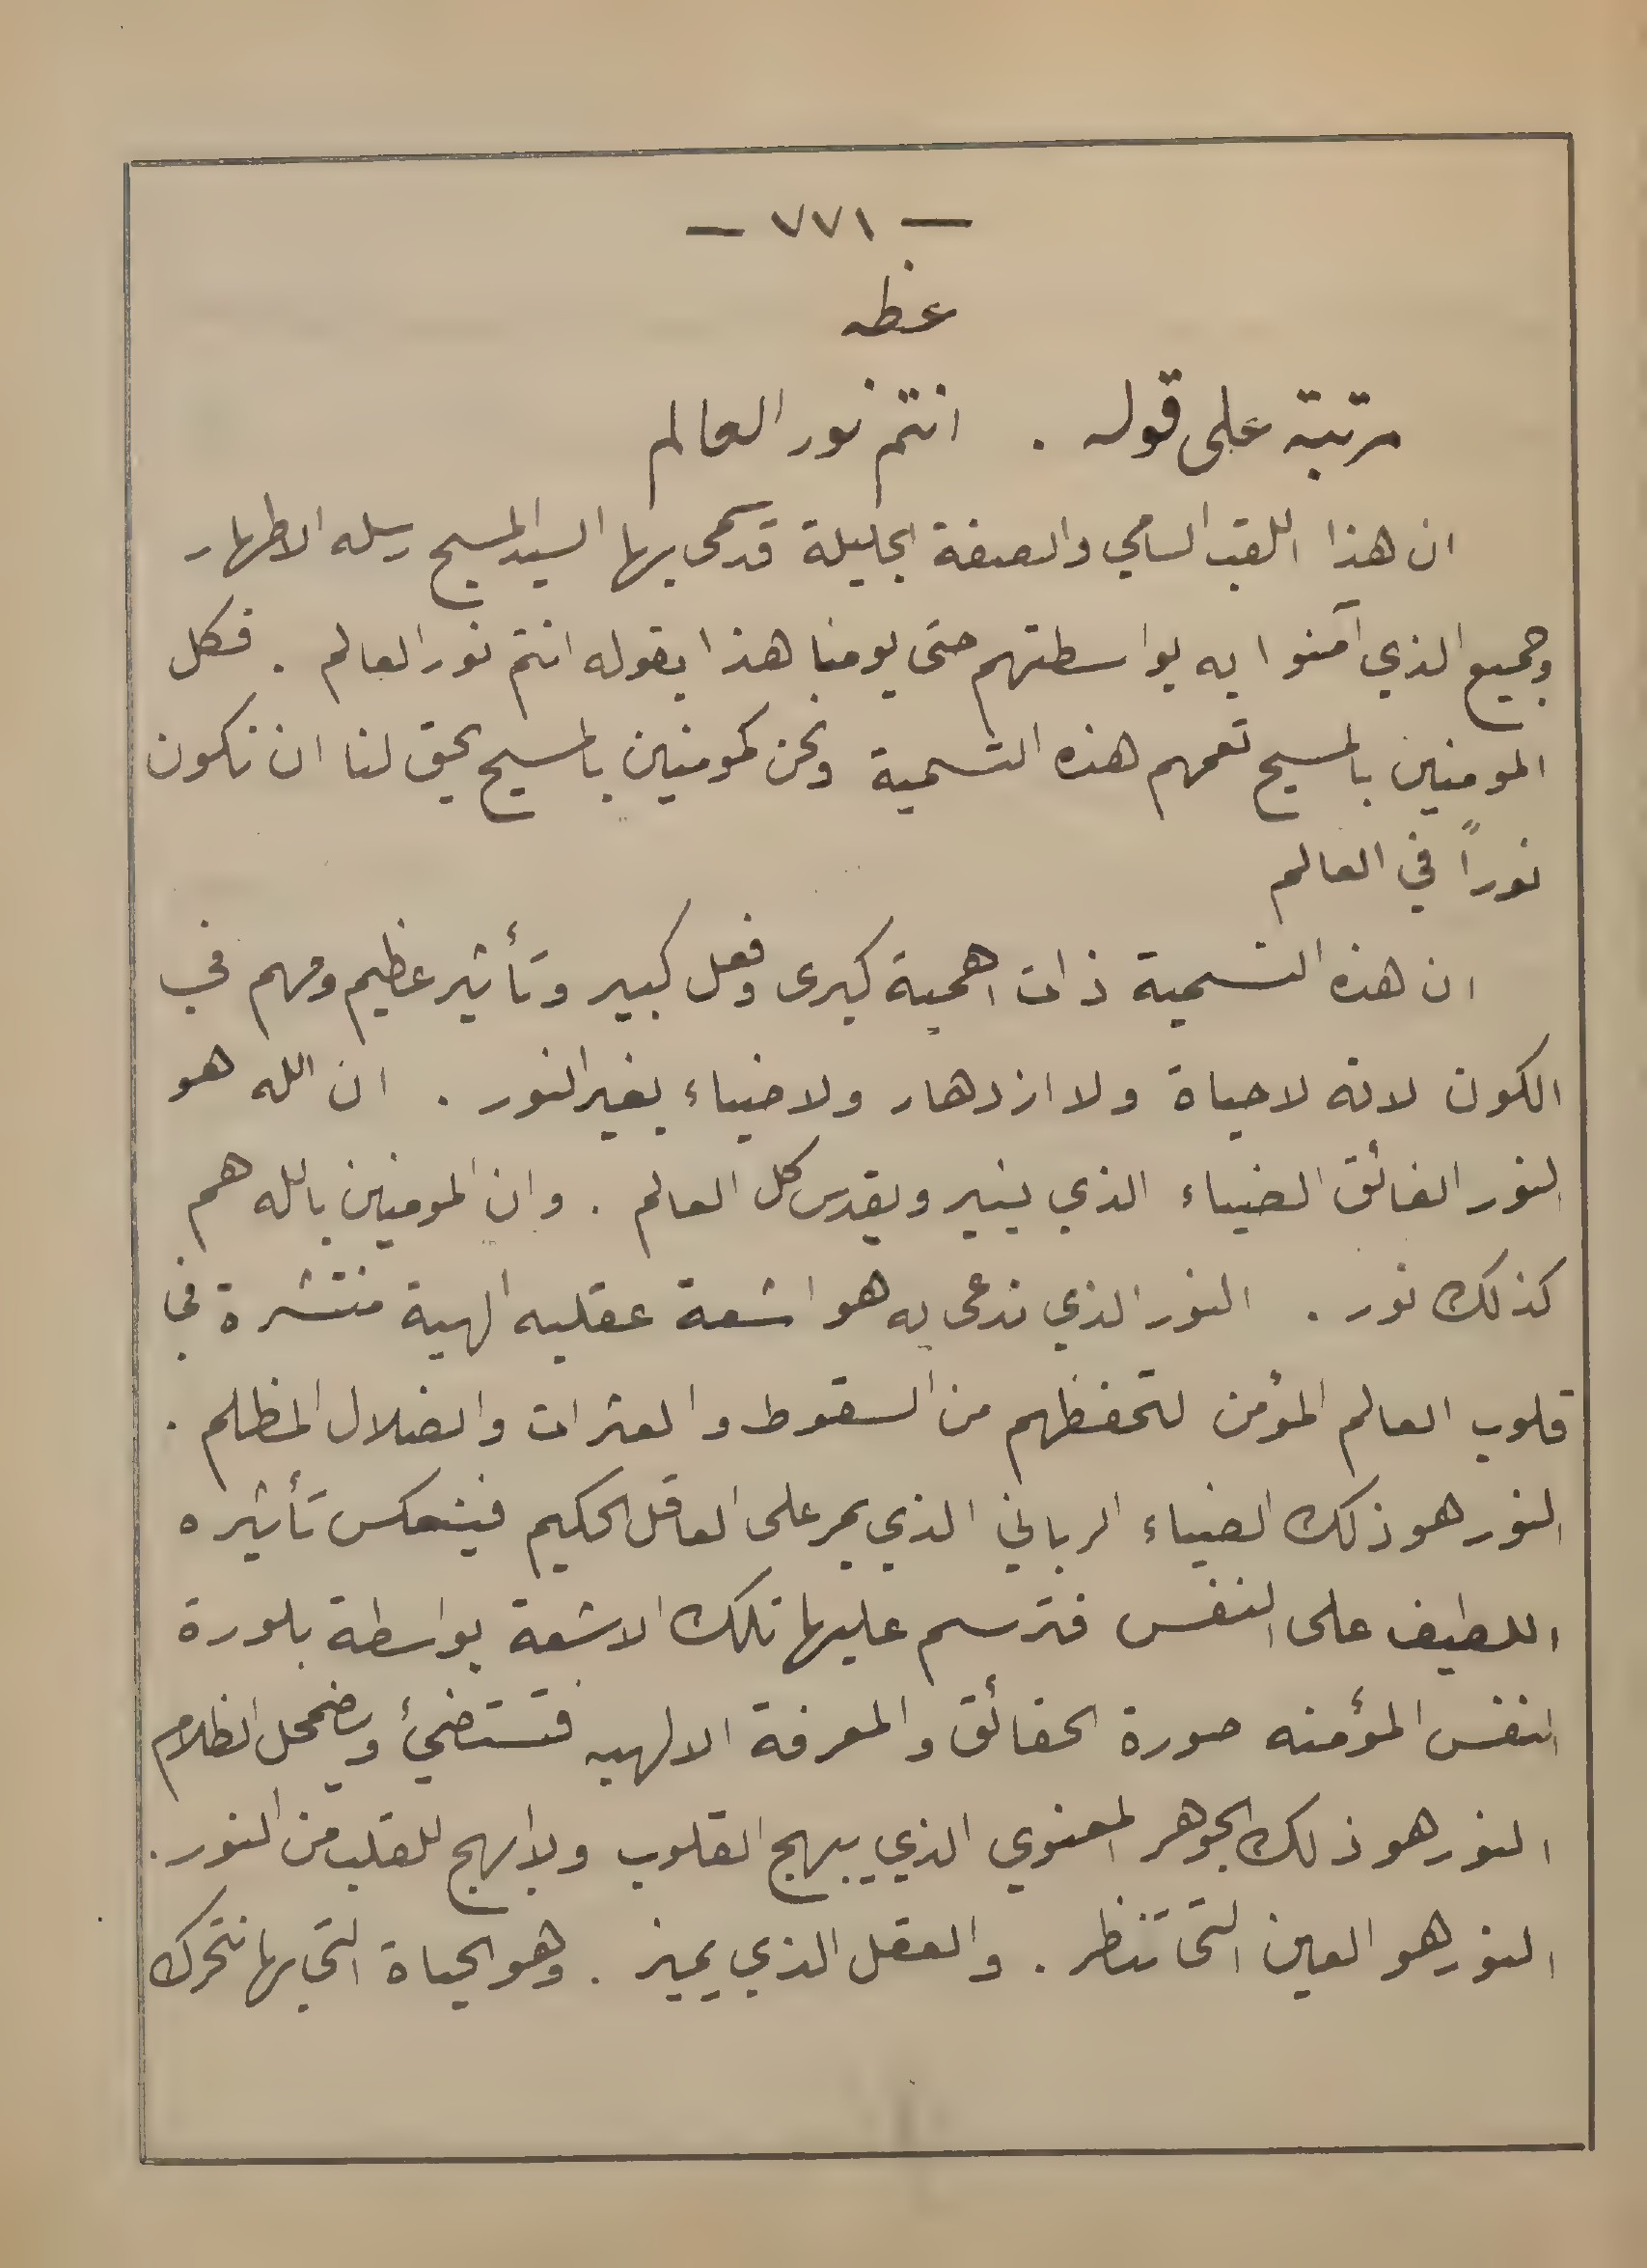 — ٧٧١ —
عظه
مرتبة على قوله . انتم نور العالم
ان هذا اللقب السامي والصفة الجليلة قد سمى بها السيد المسيح رسله الاطهار
وجميع الذي آمنوا به بواسطتهم حتى يومنا هذا بقوله انتم نور العالم . فكل
المومنين بالمسيح تعمهم هذه التسمية ونحن كمومنين بالمسيح يحق لنا ان نكون
نوراً في العالم
ان هذه التسمية ذات اهمية كبرى وفعل كبير وتأثير عظيم ومهم في
الكون لانه لا حياة ولا ازدهار ولا ضياء بغير النور . ان الله هو
النور الفائق الضياء الذي ينير ويقدس كل العالم . وان المومنين بالله هم
كذلك نور . النور الذي ندعى به هو اشعة عقليه الهية منتشرة في
قلوب العالم المؤمن لتحفظهم من السقوط والعثرات والضلال المظلم .
النور هو ذلك الضياء الرباني الذي يمر على العاقل الحكيم فينعكس تأثيره
اللطيف على النفس فترسم عليها تلك الاشعة بواسطة بلورة
النفس المؤمنه صورة الحقائق والمعرفة الالهيه فتستضيئ ويضمحل الظلام
النور هو ذلك الجوهر المعنوي الذي يبهج القلوب ولا ابهج للقلب من النور .
النور هو العين التي تنظر . والعقل الذي يميز . وهو الحياة التي بها نتحرك